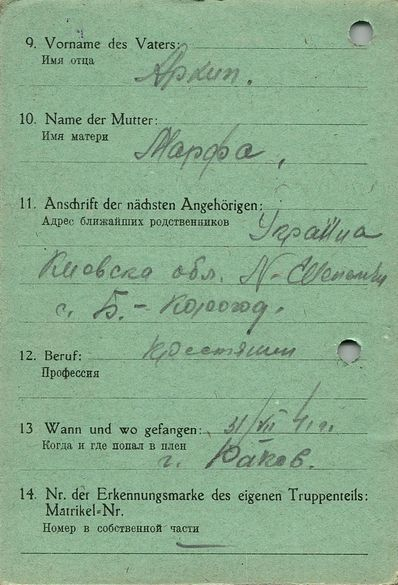 9. Vorname des Vaters:
Имя отца
Архип.
10. Name der Mutter:
Имя матери
Марфа,
11. Anschrift der nächsten Angehörigen:
Адрес ближайших родственников
Украйна
Киевска обл. N-
с. Б.- Корогод.
12. Beruf: крестянин
Профессия
13 Wann und wo gefangen: 31/VII 41г.
Когда и где попал в плен
г.
14. Nr. der Erkennungsmarke des eigenen Truppenteils:
Matrikel=Nr.
Номер в собственной части
—